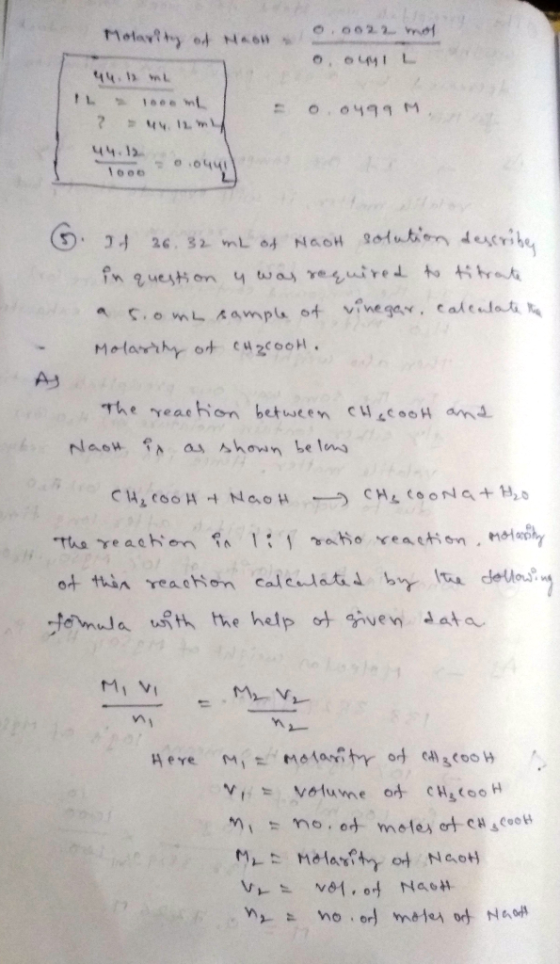 Molarity of NaOH = 0.0022 mol
0.0441 L
= 0.0499 M.
44.12 mL
1 L = 1000 mL
? = 44.12 mL
44.12
1000
= 0.0441
L
5. If 36.32 mL of NaOH solution describes
in question 4 was required to titrate
a 5.0 mL sample of vinegar. calculate the
Molarity of CH3COOH.
A)
The reaction between CH3COOH and
NaOH is as shown below
CH3COOH + NaOH → CH3COONa + H2O
The reaction is 1:1 ratio reaction. Molarity
of this reaction calculated by the following
formula with the help of given data
M1 V1
n1
=
M2 V2
n2
Here M1 = Molarity of CH3COOH
V1 = Volume of CH3COOH
n1 = no. of moles of CH3COOH
M2 = Molarity of NaOH
V2 = vol. of NaOH
n2 = no. of moles of NaOH